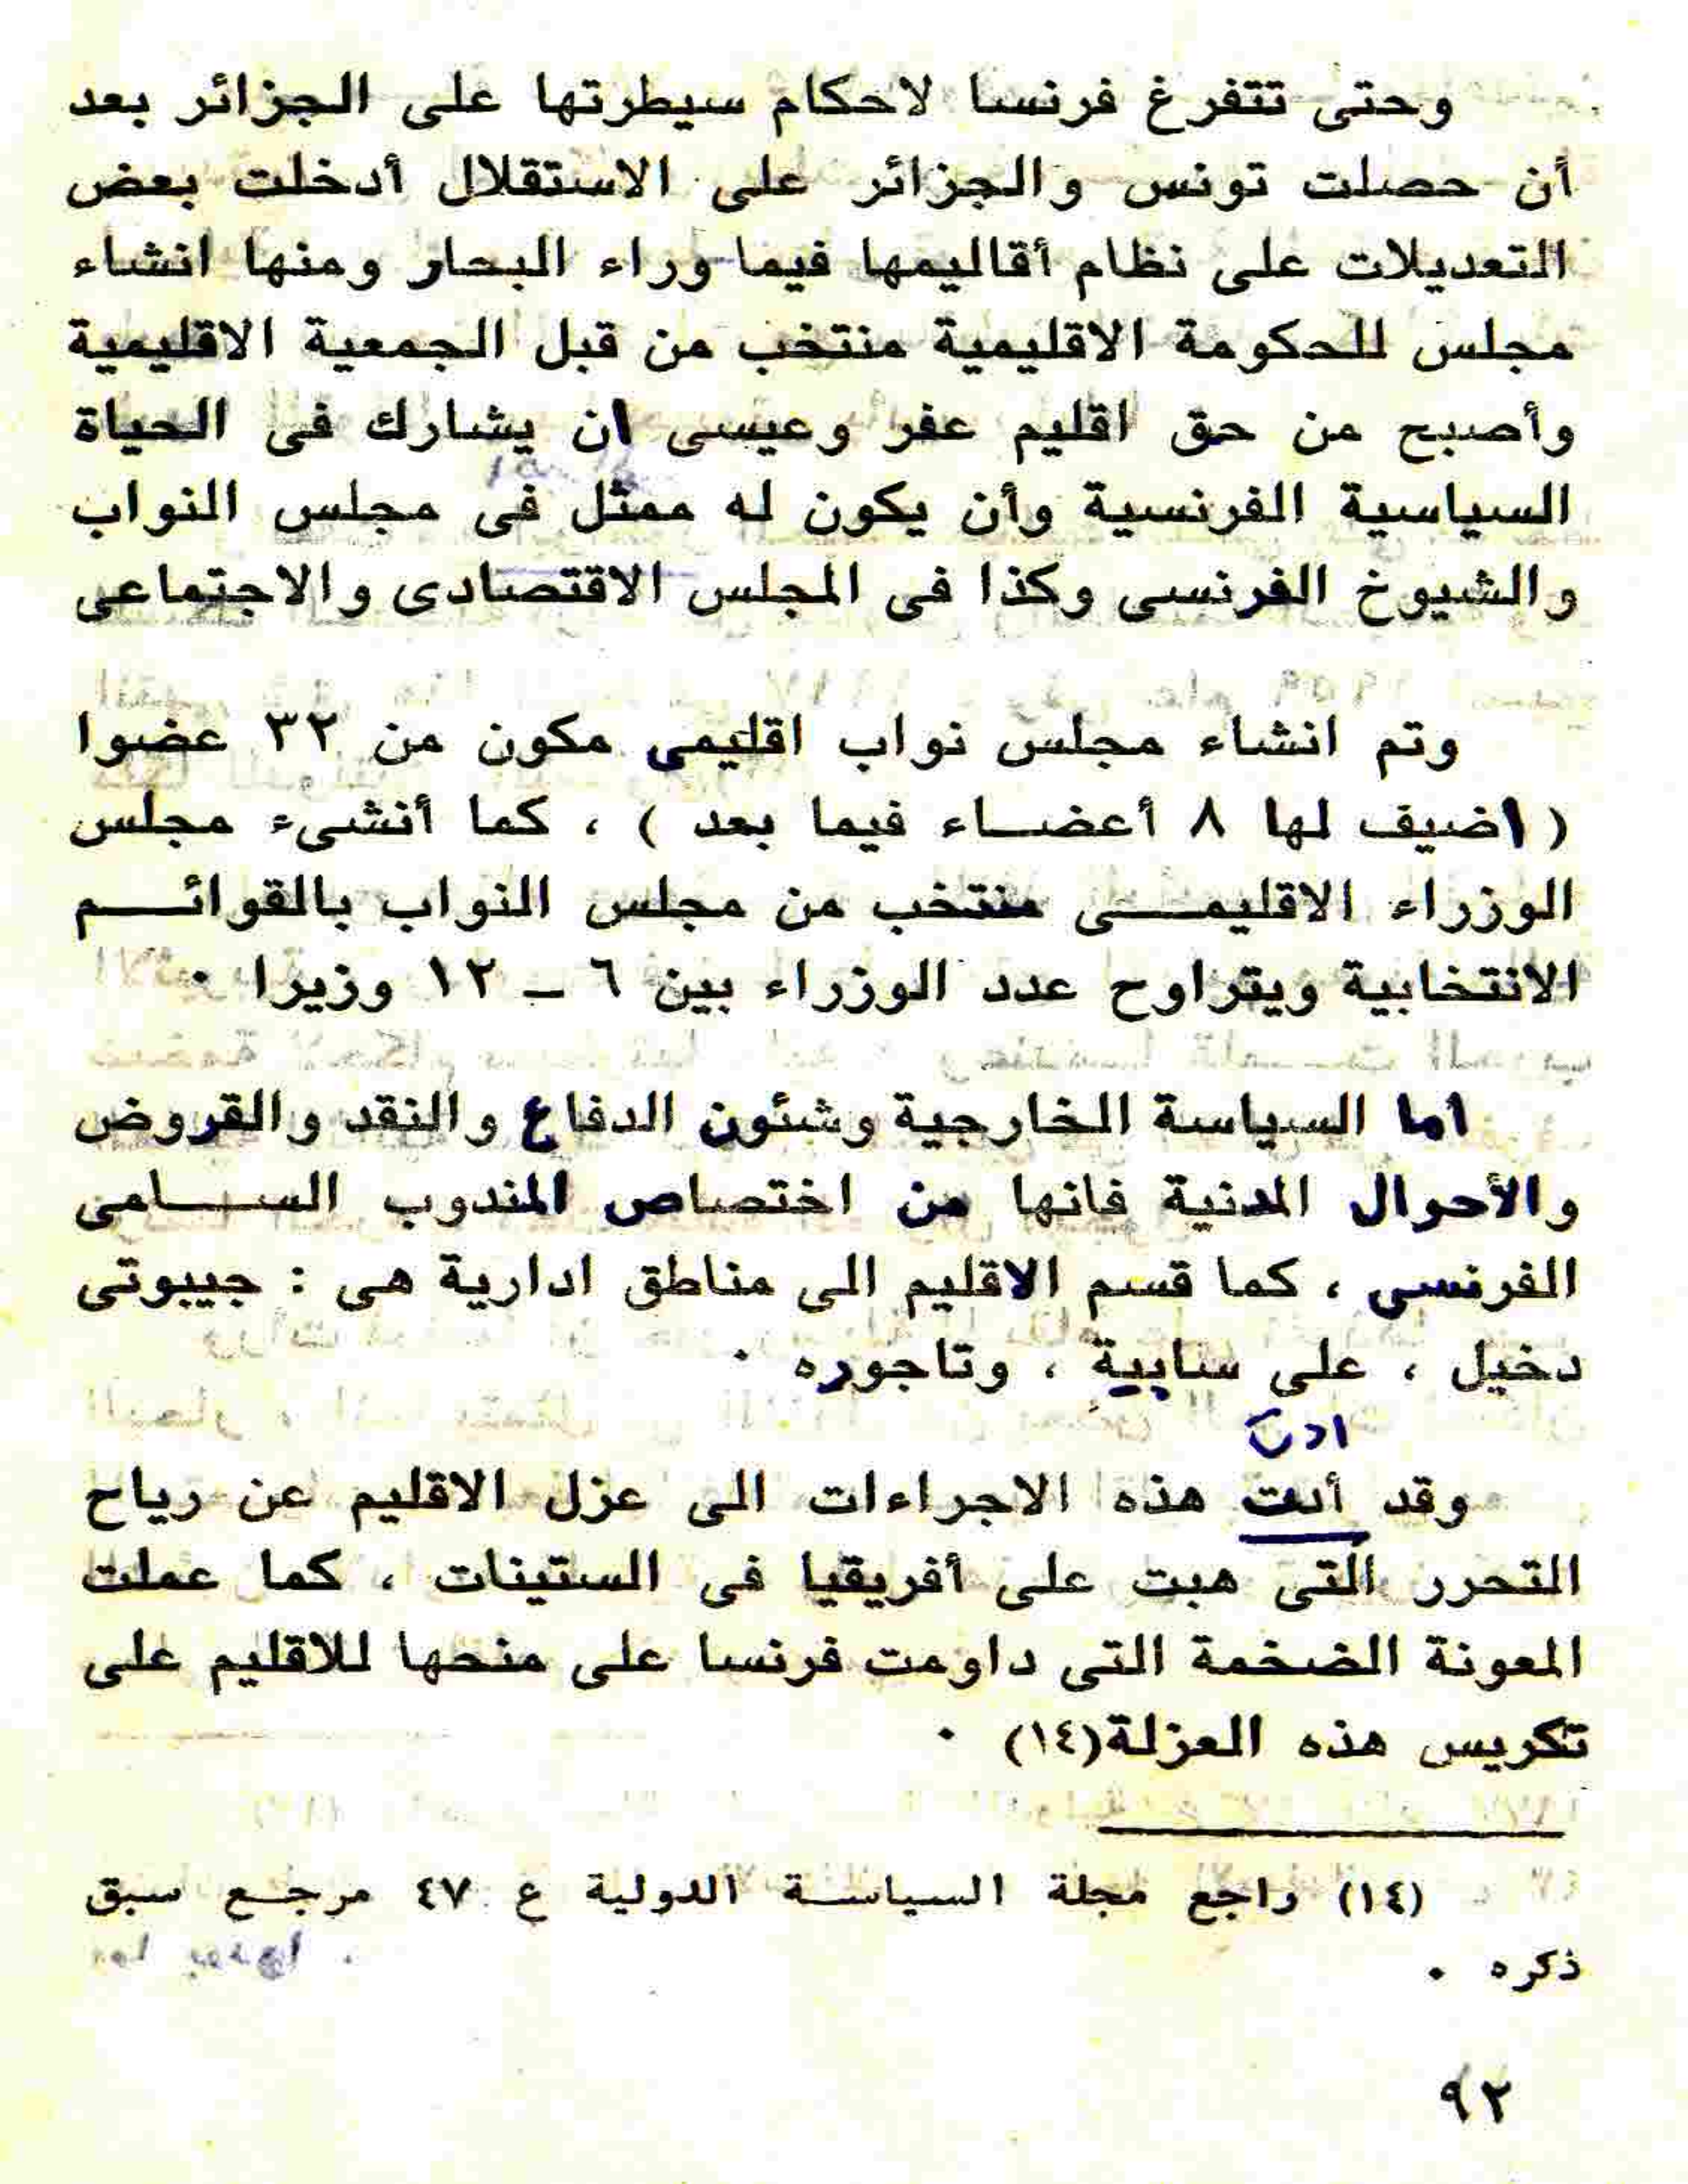 وحتى تتفرغ فرنسا لاحكام سيطرتها على الجزائر بعد
أن حصلت تونس والجزائر على الاستقلال أدخلت بعض
التعديلات على نظام أقاليمها فيما وراء البحار ومنها انشاء
مجلس للحكومة الاقليمية منتخب من قبل الجمعية الاقليمية
وأصبح من حق اقليم عفر وعيسى ان يشارك فى الحياة
السياسية الفرنسية وأن يكون له ممثل فى مجلس النواب
والشيوخ الفرنسى وكذا فى المجلس الاقتصادى والاجتماعى
وتم انشاء مجلس نواب اقليمى مكون من ٣٢ عضوا
( اضيف لها ٨ أعضاء فيما بعد ) ، كما أنشىء مجلس
الوزراء الاقليمى منتخب من مجلس النواب بالقوائم
الانتخابية ويتراوح عدد الوزراء بين ٦ ــ ١٢ وزيرا ٠
اما السياسة الخارجية وشئون الدفاع والنقد والقروض
والأحوال المدنية فانها من اختصاص المندوب السامى
الفرنسى ، كما قسم الاقليم الى مناطق ادارية هى : جيبوتى
دخيل ، على سابية ، وتاجوره ٠
ادت
وقد أدت هذه الاجراءات الى عزل الاقليم عن رياح
التحرر التى هبت على أفريقيا فى الستينات ، كما عملت
المعونة الضخمة التى داومت فرنسا على منحها للاقليم على
تكريس هذه العزلة(١٤) ٠
(١٤) راجع مجلة السياسة الدولية ع ٤٧ مرجع سبق
ذكره ٠
٩٢